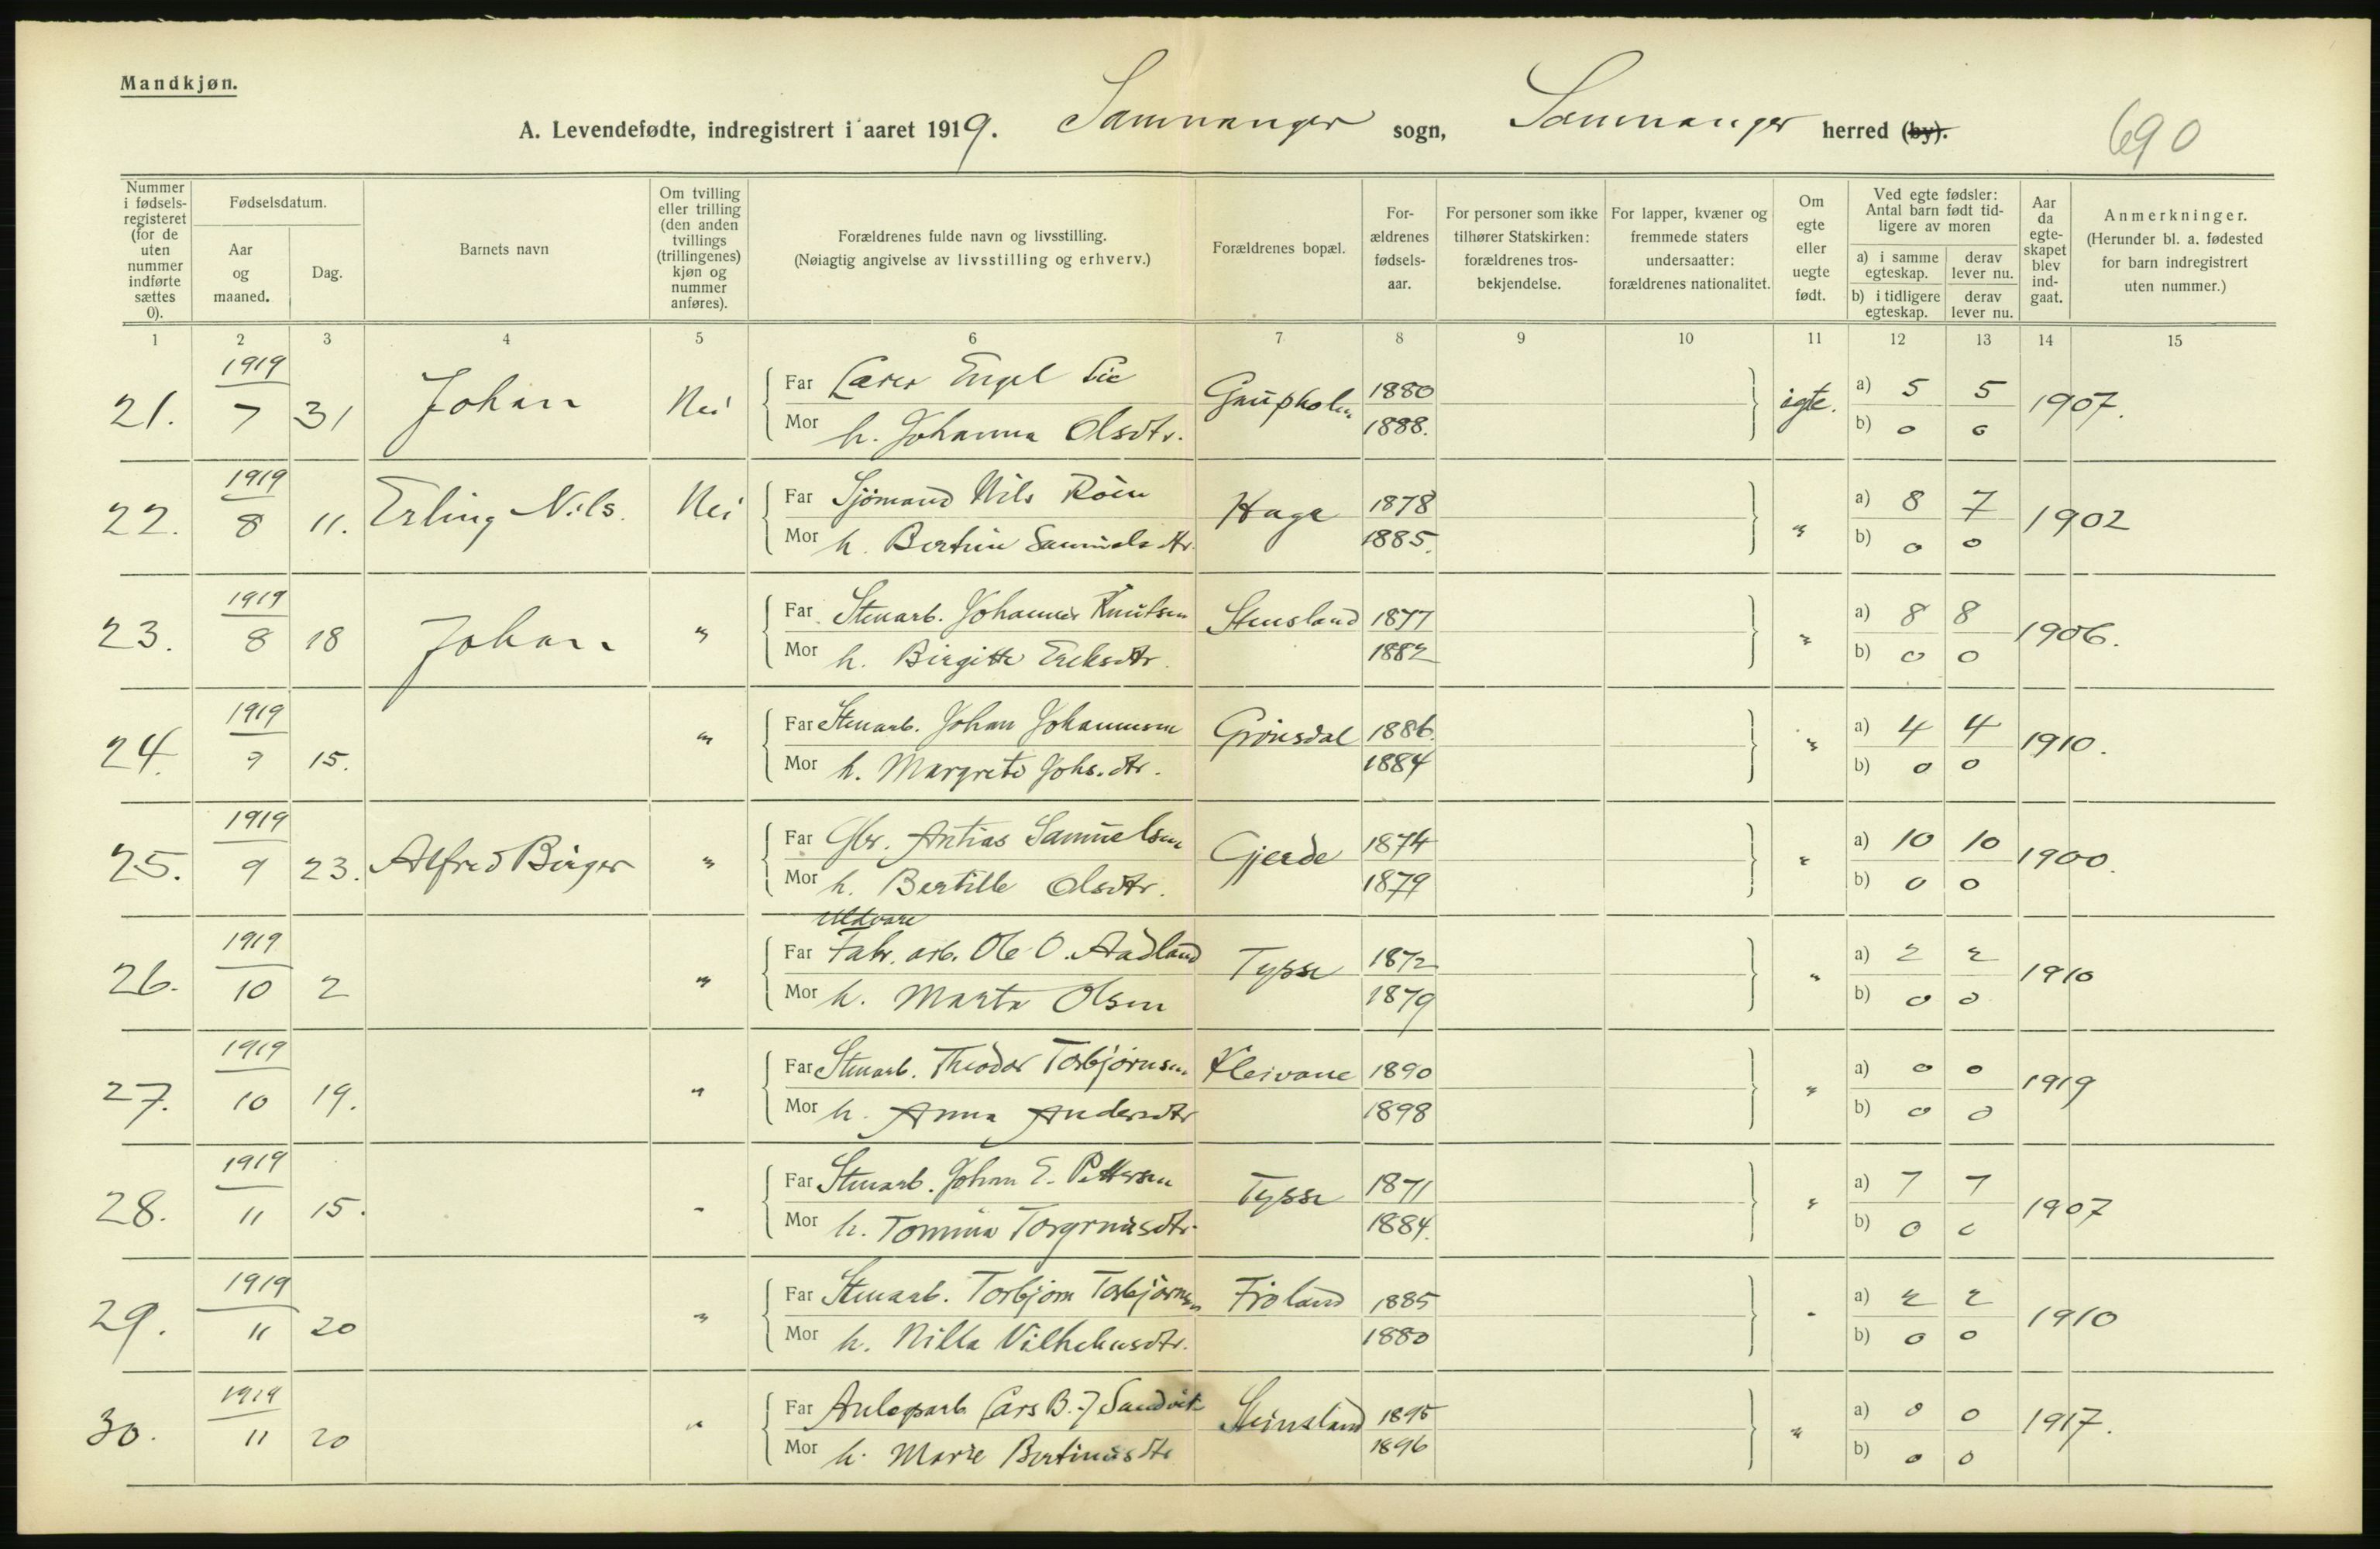 Mandkjøn.
A. Levendefødte, indregistrert i aaret 1919. Samnanger sogn, Samnanger herred (by).
690
Nummer i fødselsregisteret (for de uten nummer indførte sættes 0).
Fødselsdatum.
Aar og maaned.
Dag.
Barnets navn
Om tvilling eller trilling (den anden tvillings (trillingenes) kjøn og nummer anføres).
Forældrenes fulde navn og livsstilling.
(Nøiagtig angivelse av livsstilling og erhverv.)
Forældrenes bopæl.
Forældrenes fødselsaar.
For personer som ikke tilhører Statskirken: forældrenes trosbekjendelse.
For lapper, kvæner og fremmede staters undersaatter: forældrenes nationalitet.
Om egte eller uegte født.
Ved egte fødsler: Antal barn født tidligere av moren
a) i samme egteskap. derav lever nu.
b) i tidligere egteskap. derav lever nu.
Aar da egteskapet blev indgaat.
Anmerkninger.
(Herunder bl. a. fødested for barn indregistrert uten nummer.)
1 2 3 4 5 6 7 8 9 10 11 12 13 14 15
21. 1919 7 31 Johan Nei Far Lærer Engel Lie Gaupholm 1880 egte. a) 5 5 1907.
Mor h. Johanna Olsdtr. 1888. b) 0 0
22. 1919 8 11. Erling Nils. Nei Far Sjömand Nils Röen Hage 1878 " a) 8 7 1902
Mor h. Bertine Samuelsdtr. 1885. b) 0 0
23. 1919 8 18 Johan " Far Stenarb. Johannes Knutsen Stensland 1877 " a) 8 8 1906.
Mor h. Birgitte Eriksdtr. 1882 b) 0 0
24. 1919 9 15. " Far Stenarb. Johan Johannesen Grönsdal 1886. " a) 4 4 1910.
Mor h. Margrete Johs.dtr. 1884 b) 0 0
25. 1919 9 23. Alfred Birger " Far Gbr. Antias Samuelsen Gjerde 1874 " a) 10 10 1900.
Mor h. Bertille Olsdtr. 1879 b) 0 0
Uldvare
26. 1919 10 2 " Far Fabr. arb. Ole O. Aadland Tysse 1872 " a) 2 2 1910
Mor h. Marta Olsen 1879 b) 0 0
27. 1919 10 19. " Far Stenarb. Theodor Torbjörnsen Kleivane 1890 " a) 0 0 1919
Mor h. Anna Andersdtr 1898 b) 0 0
28. 1919 11 15. " Far Stenarb. Johan E. Pettersen Tysse 1871 " a) 7 7 1907
Mor h. Tomina 1884. b) 0 0
29. 1919 11 20 " Far Stenarb. Torbjörn Torbjörnsen Fröland 1885 " a) 2 2 1910
Mor h. Nilla Vilhelmsdtr. 1880 b) 0 0
30. 1919 11 20 " Far Anlegsarb. Lars B. J Sandvik Steinsland 1895 " a) 0 0 1917.
Mor h. Marie Bertinusdtr 1896 b) 0 0